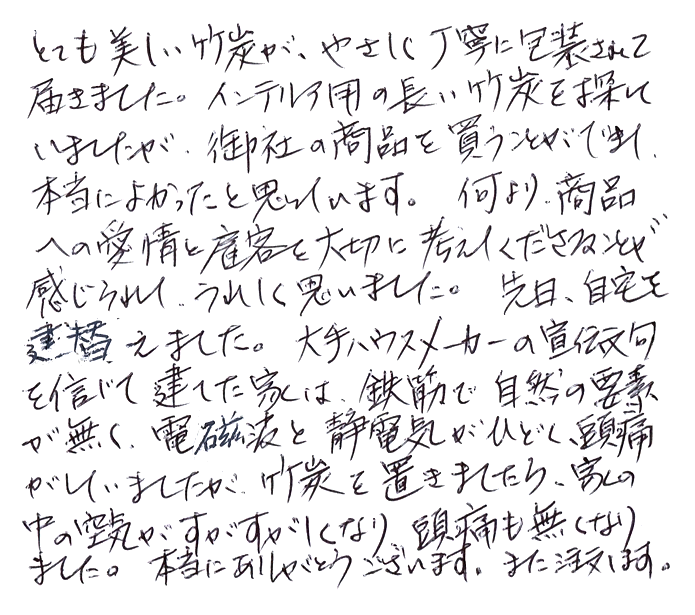 とても美しい竹炭が、やさしく丁寧に包装されて
届きました。インテリア用の長い竹炭を探して
いましたが、御社の商品を買うことができて、
本当によかったと思っています。何より、商品
への愛情と顧客を大切に考えてくださることが
感じられて、うれしく思いました。先日、自宅を
建替えました。大手ハウスメーカーの宣伝文句
を信じて建てた家は、鉄筋で自然の要素
が無く、電磁波と静電気がひどく、頭痛
がしていましたが、竹炭を置きましたら、家の
中の空気がすがすがしくなり、頭痛も無くなり
ました。本当にありがとうございます。また注文します。